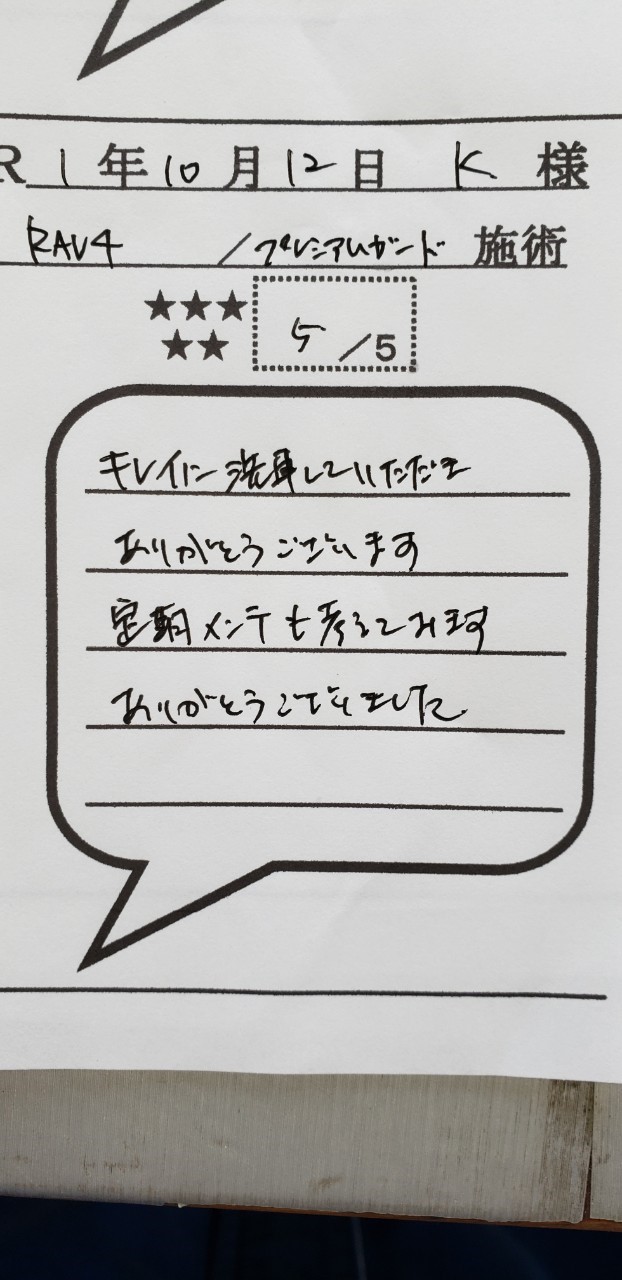 R 1 年 10 月 12 日 K 様
RAV4 /プレミアムガード 施術
★★★
★★
5 /5
キレイに洗車していただき
ありがとうございます
定期メンテも考えてみます
ありがとうございました